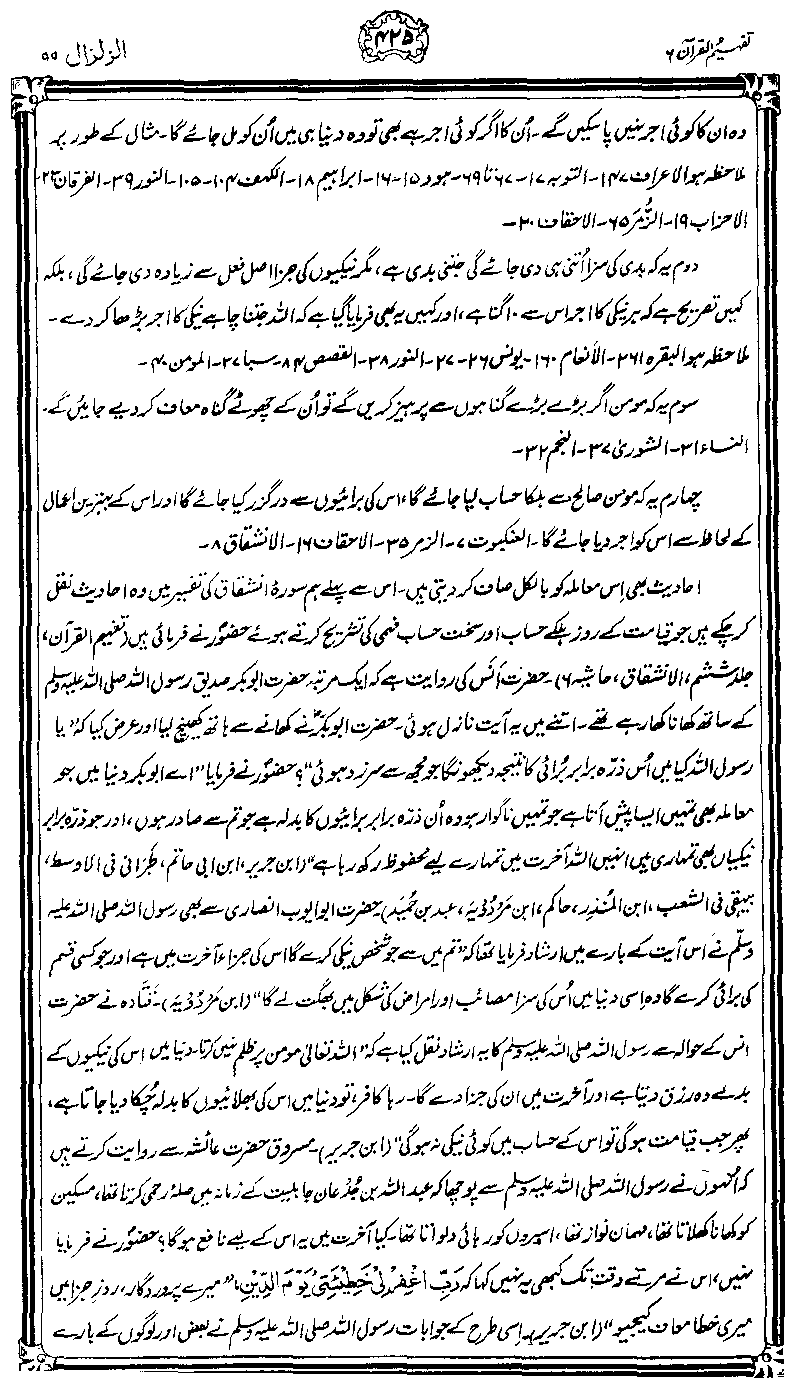 تفہیم القرآن ۶
۴۲۵
الزلزال ۹۹
وہ ان کا کوئی اجر نہیں پا سکیں گے۔ اُن کا اگر کوئی اجر ہے بھی تو وہ دنیا ہی میں اُن کو مل جائے گا۔ مثال کے طور پر
ملاحظہ ہو الاعراف ۱۴۷۔ التوبہ ۱۷۔ ۶۷ تا ۶۹۔ ہود ۱۵۔۱۶۔ ابراہیم ۱۸۔ الکہف ۱۰۴۔۱۰۵۔ النور ۳۹۔ الفرقان ۲۳۔
الاحزاب ۱۹۔ الزُّمَر ۶۵۔ الاحقاف ۲۰۔
دوم یہ کہ بدی کی سزا اُتنی ہی دی جائے گی جتنی بدی ہے، مگر نیکیوں کی جزا اصل فعل سے زیادہ دی جائے گی، بلکہ
کہیں تصریح ہے کہ ہر نیکی کا اجر اس سے ۱۰ گنا ہے، اور کہیں یہ بھی فرمایا گیا ہے کہ اللہ جتنا چاہے نیکی کا اجر بڑھا کر دے۔
ملاحظہ ہو البقرہ ۲۶۱۔ الأنعام ۱۶۰۔ یونس ۲۶۔۲۷۔ النور ۳۸۔ القصص ۸۴۔ سبا ۳۷۔ المومن ۴۰۔
سوم یہ کہ مومن اگر بڑے بڑے گناہوں سے پرہیز کریں گے تو اُن کے چھوٹے گناہ معاف کر دیے جائیں گے۔
النساء ۳۱۔ الشوریٰ ۳۷۔ النجم ۳۲۔
چہارم یہ کہ مومن صالح سے ہلکا حساب لیا جائے گا، اس کی برائیوں سے درگزر کیا جائے گا اور اس کے بہترین اعمال
کے لحاظ سے اس کو اجر دیا جائے گا۔ العنکبوت ۷۔ الزمر ۳۵۔ الاحقاف ۱۶۔ الانشقاق ۸۔
احادیث بھی اِس معاملہ کو بالکل صاف کر دیتی ہیں۔ اس سے پہلے ہم سورۂ انشقاق کی تفسیر میں وہ احادیث نقل
کر چکے ہیں جو قیامت کے روز ہلکے حساب اور سخت حساب فہمی کی تشریح کرتے ہوئے حضورؐ نے فرمائی ہیں (تفہیم القرآن،
جلد ششم، الانشقاق، حاشیہ ۶)۔ حضرت اَنَس کی روایت ہے کہ ایک مرتبہ حضرت ابوبکر صدیق رسول اللہ صلی اللہ علیہ وسلم
کے ساتھ کھانا کھا رہے تھے۔ اتنے میں یہ آیت نازل ہوئی۔ حضرت ابوبکرؓ نے کھانے سے ہاتھ کھینچ لیا اور عرض کیا کہ "یا
رسول اللہ کیا میں اُس ذرّہ برابر بُرائی کا نتیجہ دیکھونگا جو مجھ سے سرزد ہوئی"؟ حضورؐ نے فرمایا "اے ابوبکر دنیا میں جو
معاملہ بھی تمہیں ایسا پیش آتا ہے جو تمہیں ناگوار ہو وہ اُن ذرّہ برابر برائیوں کا بدلہ ہے جو تم سے صادر ہوں، اور جو ذرّہ برابر
نیکیاں بھی تمہاری ہیں انہیں اللہ آخرت میں تمہارے لیے محفوظ رکھ رہا ہے" (ابن جریر، ابن ابی حاتم، طَبَرانی فی الاوسط،
بیہقی فی الشعب، ابن المُنذر، حاکم، ابن مَرْدُوْیَہ، عبد بن حُمَید)۔ حضرت ابو ایوب انصاری سے بھی رسول اللہ صلی اللہ علیہ
وسلّم نے اس آیت کے بارے میں ارشاد فرمایا تھا کہ "تم میں سے جو شخص نیکی کرے گا اس کی جزاء آخرت میں ہے اور جو کسی قسم
کی برائی کرے گا وہ اِسی دنیا میں اُس کی سزا مصائب اور امراض کی شکل میں بھگت لے گا" (ابن مَرْدُوْیَہ)۔ قتادہ نے حضرت
انس کے حوالہ سے رسول اللہ صلی اللہ علیہ وسلم کا یہ ارشاد نقل کیا ہے کہ "اللہ تعالیٰ مومن پر ظلم نہیں کرتا۔ دنیا میں اس کی نیکیوں کے
بدلے وہ رزق دیتا ہے اور آخرت میں ان کی جزا دے گا۔ رہا کافر، تو دنیا میں اس کی بھلائیوں کا بدلہ چُکا دیا جاتا ہے،
پھر جب قیامت ہوگی تو اس کے حساب میں کوئی نیکی نہ ہوگی" (ابن جریر)۔ مسروق حضرت عائشہ سے روایت کرتے ہیں
کہ اُنہوں نے رسول اللہ صلی اللہ علیہ وسلم سے پوچھا کہ عبد اللہ بن جُدعان جاہلیت کے زمانہ میں صلۂ رحمی کرتا تھا، مسکین
کو کھانا کھلاتا تھا، مہمان نواز تھا، اسیروں کو رہائی دلواتا تھا۔ کیا آخرت میں یہ اس کے لیے نافع ہوگا؟ حضورؐ نے فرمایا
نہیں، اس نے مرتے وقت تک کبھی یہ نہیں کہا کہ رَبِّ اغْفِرْ لِیْ خَطِیْئَتِیْ یَوْمَ الدِّیْنِ، "میرے پروردگار، روزِ جزا میں
میری خطا معاف کیجیو" (ابن جریر)۔ اِسی طرح کے جوابات رسول اللہ صلی اللہ علیہ وسلم نے بعض اور لوگوں کے بارے